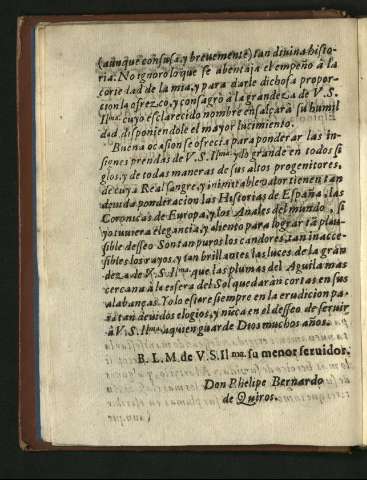 (aunque confusa, y breuemente) tan diuina histo-
ria. No ignoro lo que se abentaja el empeño â la
cortedad de la mia, y para darle dichosa propor-
cion la ofrezco, y consagrò â la grandeza de V. S.
Ilma. cuyo esclarecido nombre ensalçarà su humil
dad disponiendole el mayor lucimiento.
Buena ocasion se ofrecia para ponderar las in-
signes prendas de V. S. Ilma. y lo grande en todos si
glos, y de todas maneras de sus altos progenitores,
de cuya Real sangre, y inimitable valor tienen tan
deuida ponderacion las Historias de España, las
Coronicas de Europa, y los Anales del mundo, si
yo tuuiera elegancia, y aliento para lograr tã plau-
sible desseo Son tan puros los candores, tan inacce-
sibles los rayos, y tan brillantes las luces de la gran
deza de V. S. Ilma. que las plumas del Aguila mas
cercana à la esfera del Sol quedaràn cortas en sus
alabanças. Yo lo esfore siempre en la erudicion pa-
ra tan deuidos elogios, y nũca en el desseo de seruir
â V. S. Ilma. a quien guarde Dios muchos años.
B. L. M. de V. S. Il ma. su menor seruidor.
Don Phelipe Bernardo
de Quiros.